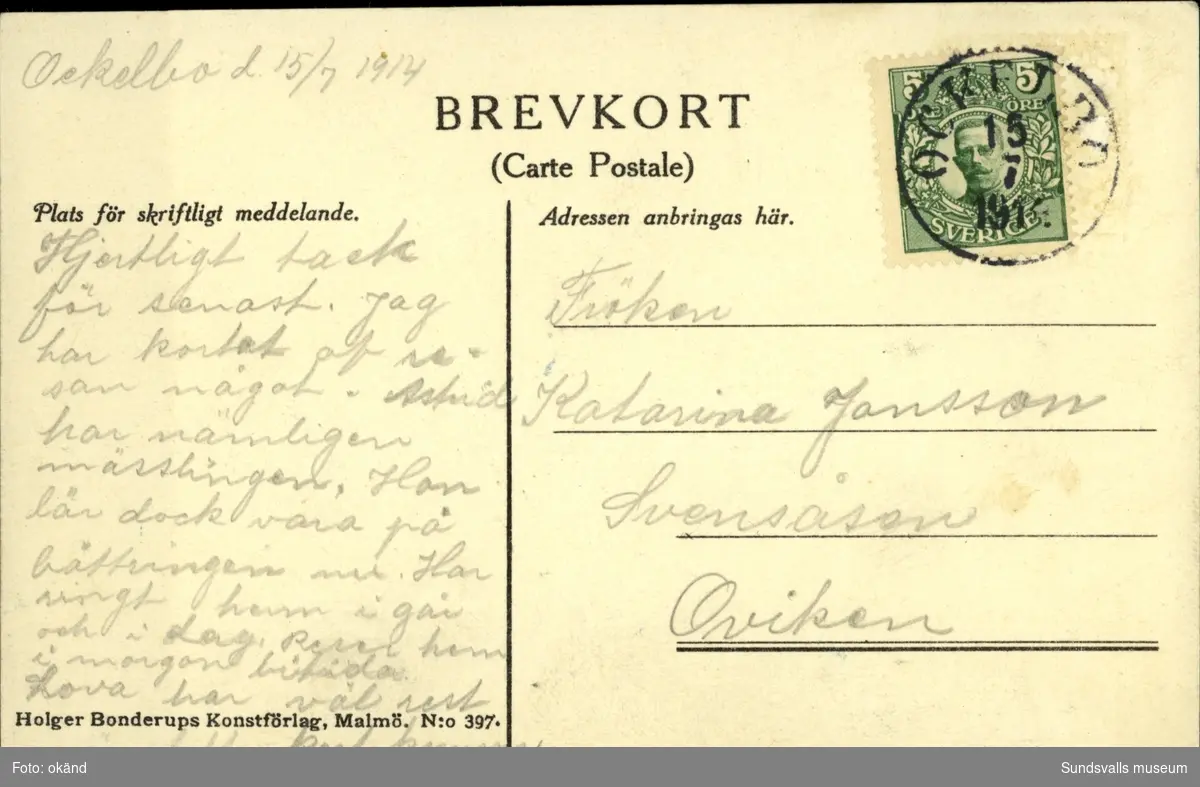 Ockelbo d. 15/7 1914
BREVKORT
(Carte Postale)
5 5
ÖRE
SVERIGE
OCKELBO
15
7
191
Plats för skriftligt meddelande.
Hjertligt tack
för senast. Jag
har kortat af re-
san något. Astrid
har nämligen
mässlingen, Hon
lär dock vara på
bättringen nu. Har
ringt hem i går
och i dag. Reser hem
i morgon bitida.
Lova har väl rest
Adressen anbringas här.
Fröken
Katarina Jonsson
Svensåsen
Oviken
Holger Bonderups Konstförlag, Malmö. N:o 397.
Foto: okänd
Sundsvalls museum